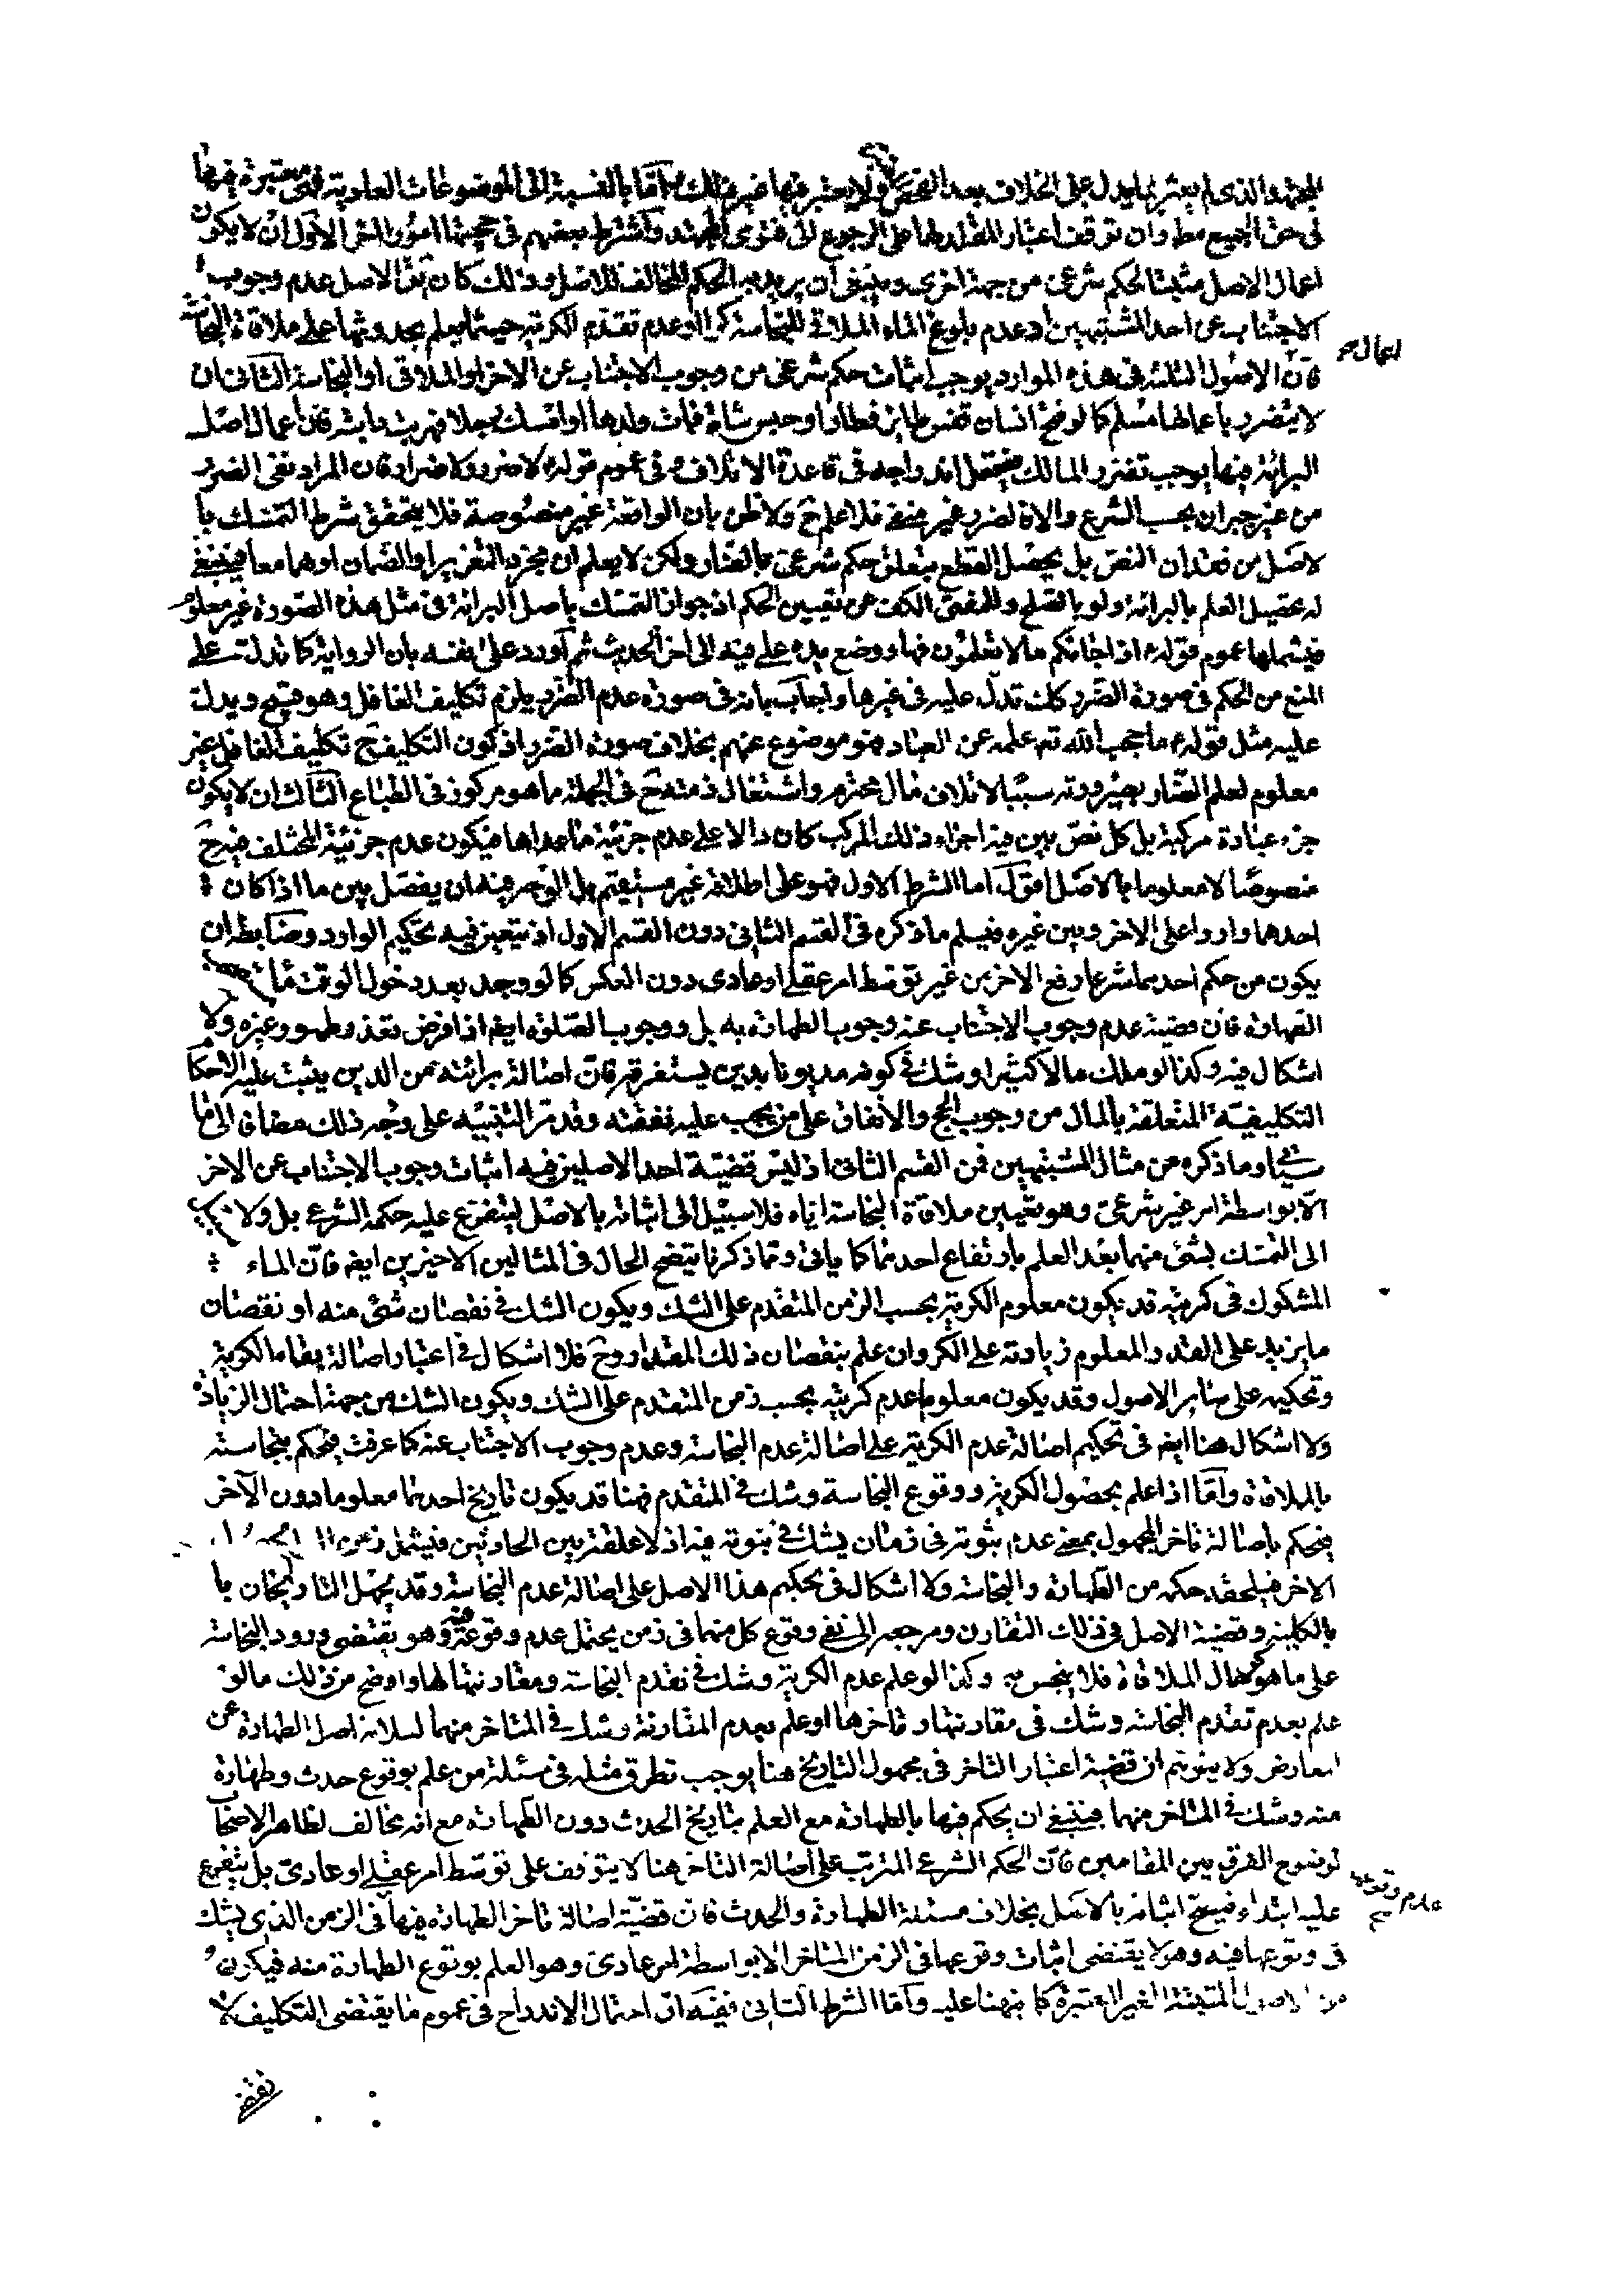 المجتهد الذى لم يعثر بما يدل على الخلاف بعد الفحص ولا يعتبر فيها غير ذلك واما بالنسبة الى الموضوعات العادية فهى معتبرة فيها
فى حق الجميع مط وان توقف اعتبار المقلد لها على الرجوع الى فتوى المجتهد واشترط بعضهم فى حجيتها امورا اخر الاول ان لا يكون
اعمال الاصل مثبتا لحكم شرعى من جهة اخرى وينبغى ان يريد به الحكم المخالف للاصل وذلك كان يقال الاصل عدم وجوب
الاجتناب عن احد المشتبهين او عدم بلوغ الماء الملاقى للنجاسة كرا او عدم تقدم الكرية حيثما يعلم بحدوثها على ملاقاة النجاسة
فان اعمال الاصول الثلثة فى هذه الموارد يوجب اثبات حكم شرعى من وجوب الاجتناب عن الاخر او الملاقى او النجاسة الثانى ان
لا يتضرر باعمالها مسلم كما لو فتح انسان قفس طاير فطار او حبس شاة فمات ولدها او امسك رجلا فهربت دابته فان اعمال اصل
البرائة فيها يوجب تضرر المالك فيحتمل اندراجه فى قاعدة الاتلاف وفى عموم قوله لا ضرر ولا ضرار فان المراد نفى الضرر
من غير جبران بحسب الشرع والا فالضرر غير منفى فلا علم ح ولا ظن بان الواقعة غير منصوصة فلا يتحقق شرط التمسك با
لاصل من فقدان النص بل يحصل القطع بتعلق حكم شرعى بالضار ولكن لا يعلم ان مجرد التعزير او الضمان او هما معا فينبغى
له تحصيل العلم بالبرائة ولو بالصلح وللمفتى الكف عن تعيين الحكم اذ جواز التمسك باصل البرائة فى مثل هذه الصورة غير معلوم
فيشملها عموم قوله اذا جائكم ما لا تعلمون فها ووضع يده على فيه الى اخر الحديث ثم اورد على نفسه بان الرواية كما تدل على
المنع من الحكم فى صورة الضرر كك تدل عليه فى غيرها واجاب بانه فى صورة عدم الضرر يلزم تكليف الغافل وهو قبيح ويدل
عليه مثل قوله ما حجب الله تع علمه عن العباد فهو موضوع عنهم بخلاف صورة الضرر اذ كون التكليف ح تكليف الغافل غير
معلوم لعلم الضار بصيرورته سببا لاتلاف مال محترم واشتغال ذمته ح فى الجملة مما هو مركوز فى الطباع الثالث ان لا يكون
جزء عبادة مركبة بل كل نص بين فيه اجزاء ذلك المركب كان دالا على عدم جزئية ما عداها فيكون عدم جزئية المختلف فيه ح
منصوصا لا معلوما بالاصل اقول اما الشرط الاول فهو على اطلاقه غير مستقيم بل الوجه فيه ان يفصل بين ما اذا كان
احدهما واردا على الاخر وبين غيره فيسلم ما ذكره فى القسم الثانى دون القسم الاول اذ يتعين فيه تحكيم الوارد وضابطه ان
يكون من حكم احدهما شرعا رفع الاخر من غير توسط امر عقلى او عادى دون العكس كما لو وجد بعد دخول الوقت ماء
الطهارة فان قضية عدم وجوب الاجتناب عنه وجوب الطهارة به بل ووجوب الصلوة ايض اذا فرض تعذر طهور غيره ولا
اشكال فيه وكذا لو ملك مالا كثيرا وشك فى كونه مديونا بدين يستغرقه فان اصالة برائته من الدين يثبت عليه الاحكا
التكليفية المتعلقة بالمال من وجوب الحج والانفاق على من يجب عليه نفقته وقد مر التنبيه على وجه ذلك مضافا الى ما
سيأتى وما ذكره من مثال المشتبهين فمن القسم الثانى اذ ليس قضية احد الاصلين فيه اثبات وجوب الاجتناب عن الاخر
الا بواسطة امر غير شرعى وهو تعيين ملاقاة النجاسة اياه فلا سبيل الى اثباته بالاصل ليتفرع عليه حكمه الشرعى بل ولا
الى التمسك بشئ منهما بعد العلم بارتفاع احدهما كما ياتى ومما ذكرنا يتضح الحال فى المثالين الاخيرين ايض فان الماء
المشكوك فى كريته قد يكون معلوم الكرية بحسب الزمن المتقدم على الشك ويكون الشك فى نقصان شئ منه او نقصان
ما يزيد على القدر المعلوم زيادته على الكر وان علم بنقصان ذلك المقدار وح فلا اشكال فى اعتبار اصالة بقاء الكرية
وتحكيمه على ساير الاصول وقد يكون معلوما عدم كريته بحسب زمن المتقدم على الشك ويكون الشك من جهة احتمال الزيادة
ولا اشكال هنا ايض فى تحكيم اصالة عدم الكرية على اصالة عدم النجاسة وعدم وجوب الاجتناب عنه كما عرفت فيحكم بنجاسته
بالملاقاة واما اذا علم بحصول الكرية ووقوع النجاسة وشك فى المتقدم فهنا قد يكون تاريخ احدهما معلوما دون الآخر
فيحكم باصالة تاخر المجهول بمعنى عدم ثبوته فى زمان يشك فى ثبوته فيه اذ لا علقة بين الحادثين فيشمل زمن
الاخر فيلحقه حكمه من الطهارة والنجاسة ولا اشكال فى تحكيم هذا الاصل على اصالة عدم النجاسة وقد يجهل التاريخان با
بالكلية وقضية الاصل فى ذلك التقارن ومرجعه الى نفى وقوع كل منهما فى زمن يحتمل عدم وقوعه فيه وهو يقتضى ورود النجاسة
على ما هو كر حال الملاقاة فلا ينجس به وكذا لو علم عدم الكرية وشك فى تقدم النجاسة ومقارنتها لها واوضح من ذلك ما لو
علم بعدم تقدم النجاسة وشك فى مقارنتها وتاخرها او علم بعدم المقارنة وشك فى المتاخر منهما لسلامة اصل الطهارة عن
المعارض ولا يتوهم ان قضية اعتبار التاخر فى مجهول التاريخ هنا يوجب تطرق مثله فى مسئلة من علم بوقوع حدث وطهارة
منه وشك فى المتاخر منهما فينبغى ان يحكم فيها بالطهارة مع العلم بتاريخ الحدث دون الطهارة مع انه مخالف لظاهر الاصحا
لوضوح الفرق بين المقامين فان الحكم الشرعى المترتب على اصالة التاخر هنا لا يتوقف على توسط امر عقلى او عادى بل يتفرع
عليه ابتداء فيصح اثباته بالاصل بخلاف مسئلة الطهارة والحدث فان قضية اصالة تاخر الطهارة فيها عدم وقوعها فى الزمن الذى يشك
فى وقوعها فيه وهو لا يقتضى اثبات وقوعها فى الزمن المتاخر الا بواسطة امر عادى وهو العلم بوقوع الطهارة منه فيكون
من الاصول المثبتة الغير المعتبرة كما نبهنا عليه واما الشرط الثانى ففيه ان احتمال الاندراج فى عموم ما يقتضى التكليف لا